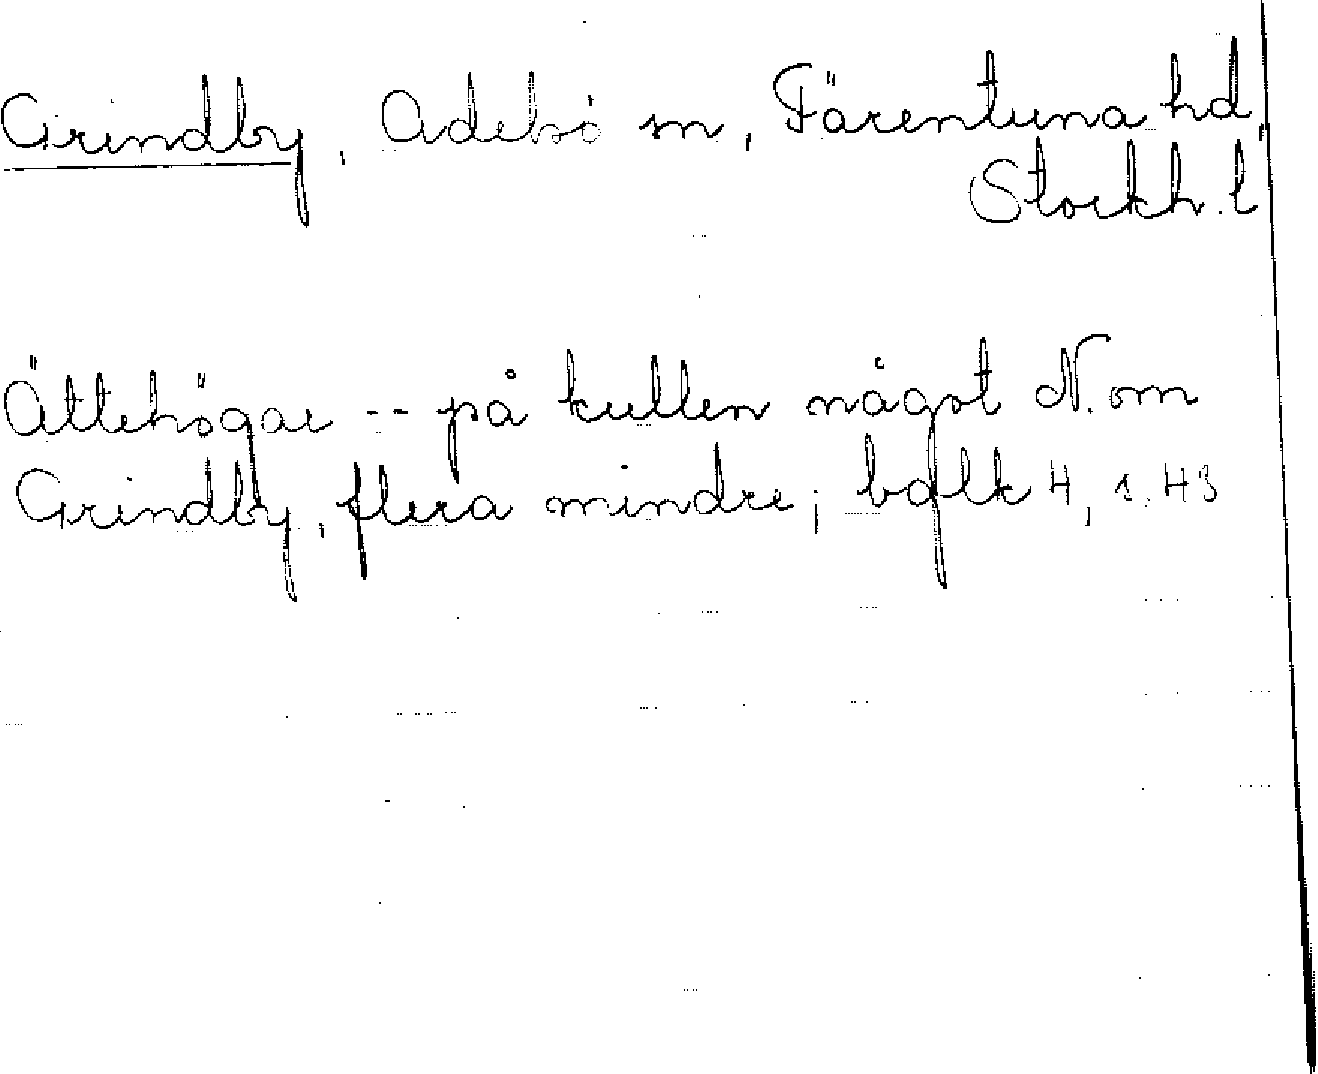 Grindby, Adelsö sn, Färentuna hd,
Stockh. l
Ättehögar -- på kullen något N. om
Grindby, flera mindre; balk 4, s. 43